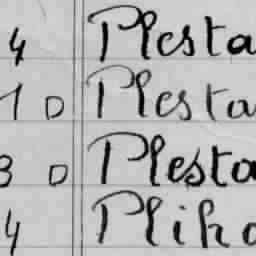 4 Plesta
1 D Plesta
3 D Plesta
4 Plika